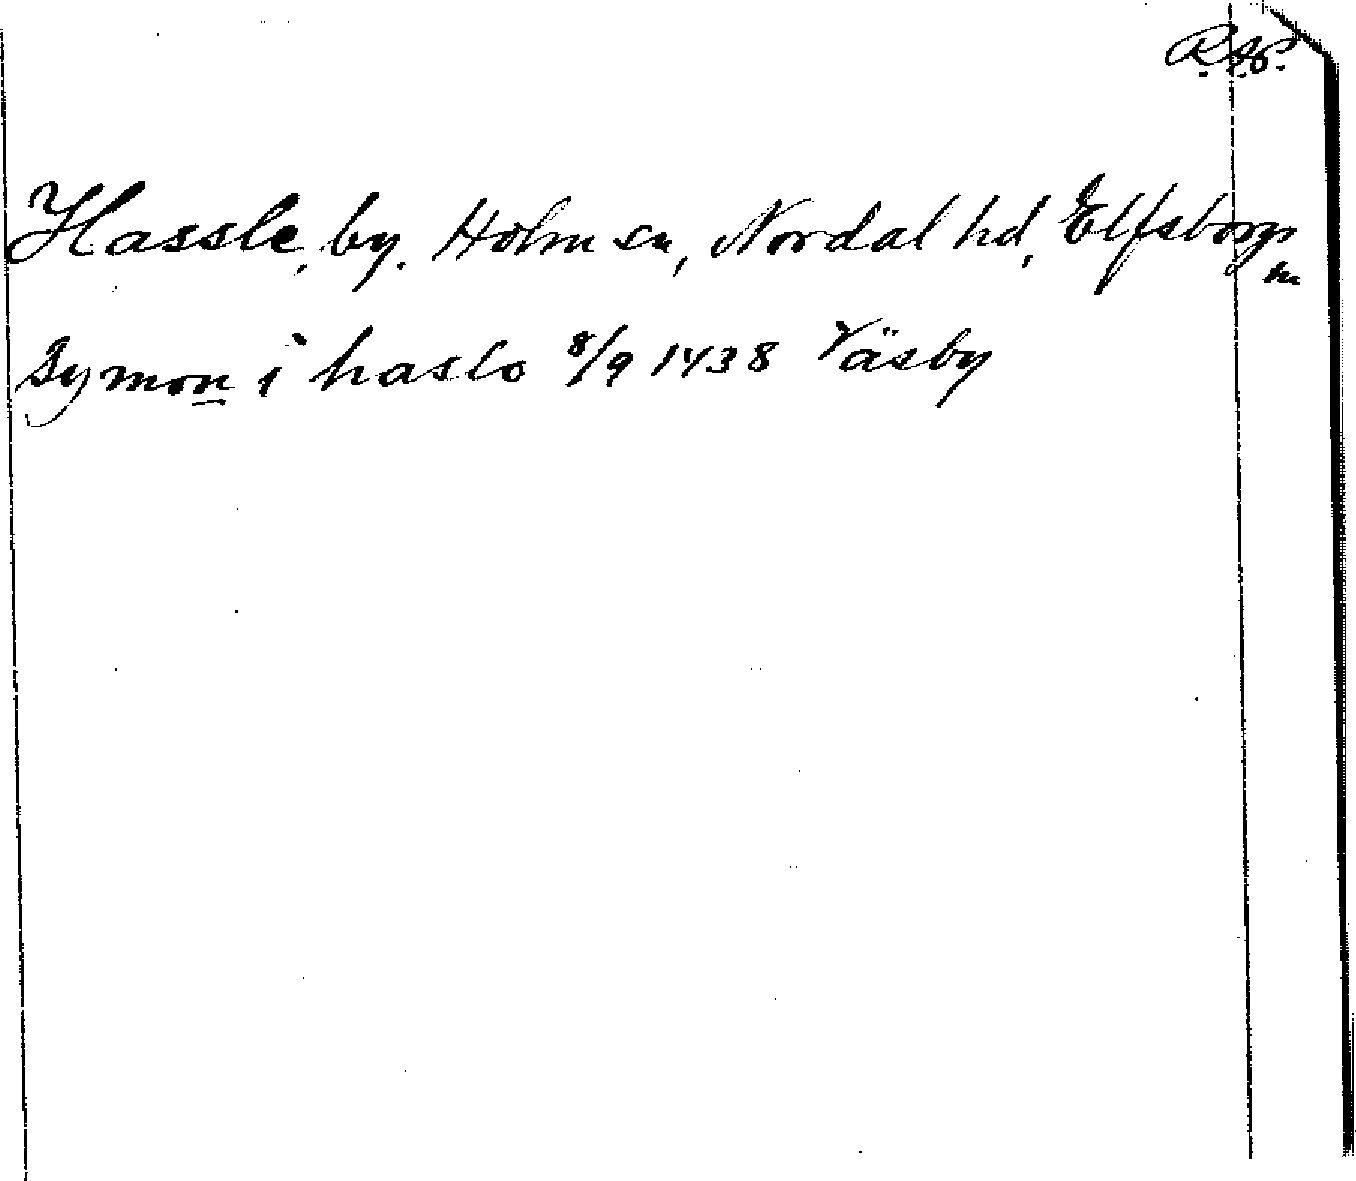 R.A.P.
Hassle, by. Holm sn, Nordal hd, Elfsborgs
ln
Symon i haslo 8/9 1438 Väsby